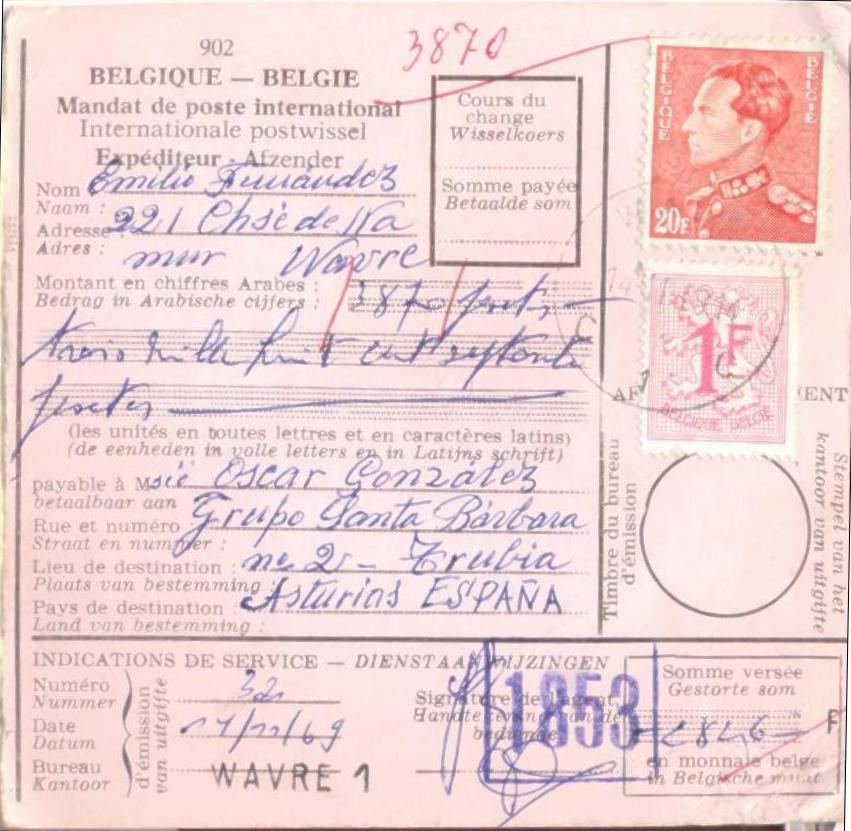 902
3870
BELGIQUE — BELGIE
Mandat de poste international
Internationale postwissel
Expéditeur - Afzender
Nom Emilio Fernandez
Naam :
Adresse 221 Chsé de Na
Adres : mur Wavre
Cours du
change
Wisselkoers
Somme payée
Betaalde som
BELGIQUE
BELGIË
20F
1F
BELGIQUE BELGIË
Montant en chiffres Arabes :
Bedrag in Arabische cijfers : 3870 psts
trois mille huit cent septante
pesetas
(les unités en toutes lettres et en caractères latins)
(de eenheden in volle letters en in Latijns schrift)
payable à M Oscar González
betaalbaar aan
Rue et numéro : Grupo Santa Bárbara
Straat en nummer :
Lieu de destination : nº 2 - Trubia
Plaats van bestemming :
Pays de destination : Asturias ESPAÑA
Land van bestemming :
AF
ENT
Timbre du bureau
d'émission
Stempel van het
kantoor van uitgifte
INDICATIONS DE SERVICE — DIENSTAANWIJZINGEN
Numéro
Nummer 32
Date
Datum 17/11/69
Bureau
Kantoor WAVRE 1
d'émission
van uitgifte
Signature de l'agent
Handtekening van de
bediende
1853
Somme versée
Gestorte som
2846 F
en monnaie belge
in Belgische munt